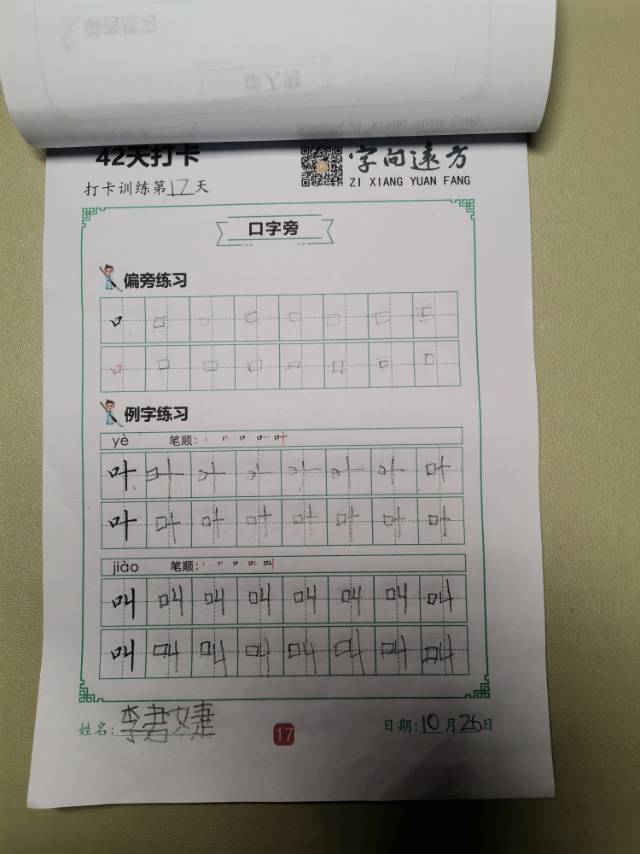 偏旁练习
单人旁
42天打卡
字向远方
打卡训练第17天
ZI XIANG YUAN FANG
口字旁
偏旁练习
口口口口口口口口
口口口口口口口口
例字练习
yè 笔顺:
叶叶叶叶叶叶叶叶
叶叶叶叶叶叶叶叶
jiào 笔顺:
叫叫叫叫叫叫叫叫
叫叫叫叫叫叫叫叫
姓名:李君婕
17
日期:10月26日